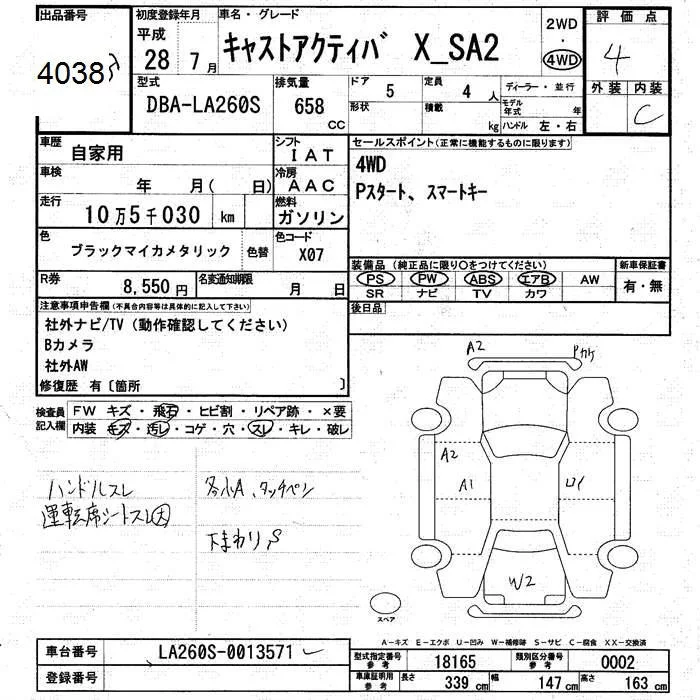 出品番号 初度登録年月 車名・グレード 2WD 評価点
平成
4038 28年 7月 キャストアクティバ X_SA2 4WD 4
型式 排気量 ドア 5 定員 4人 ディーラー・並行 外装 内装
DBA-LA260S 658 CC 形状 積載 kg モデル年式 年 C
ハンドル 左・右
車歴 自家用 シフト IAT セールスポイント(正常に機能するものに限ります)
車検 年 月( 日) 冷房 AAC 4WD
走行 10万5千030 km 燃料 ガソリン Pスタート、スマートキー
色 ブラックマイカメタリック 色替 色コード X07
装備品(純正品に限り○をつけてください) 新車保証書
R券 8,550円 名変通知期限 月 日 PS PW ABS エアB AW 有・無
SR ナビ TV カワ
注意事項申告欄(不具合内容等は具体的に記入して下さい) 後日品
社外ナビ/TV(動作確認してください)
Bカメラ
社外AW
修復歴 有〔箇所 〕
検査員記入欄 FW キズ・飛石・ヒビ割・リペア跡・×要
内装 キズ・汚レ・コゲ・穴・スレ・キレ・破レ
A2 Pカケ
A2
A1
W2
ハンドルスレ 各小A、タッチペン
運転席シートスレ大
下まわりS
スペア
A−キズ E−エクボ U−凹み W−補修跡 S−サビ C−腐食 XX−交換済
車台番号 LA260S-0013571 型式指定番号 参考 18165 類別区分番号 参考 0002
登録番号 車庫証明用 参考 長さ 339 cm 幅 147 cm 高さ 163 cm